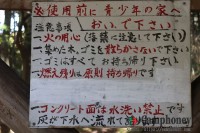 ※使用前に青少年の家へ
注意事項 おいで下さい
一、火の用心（落葉に注意して下さい）
一、集めた木、ゴミを散らかさないで下さい
一、ゴミはすべてお持ち帰り下さい
一、燃え残りは原則持ち帰りです
一、コンクリート面は水洗い禁止です
灰が下水へ流れて